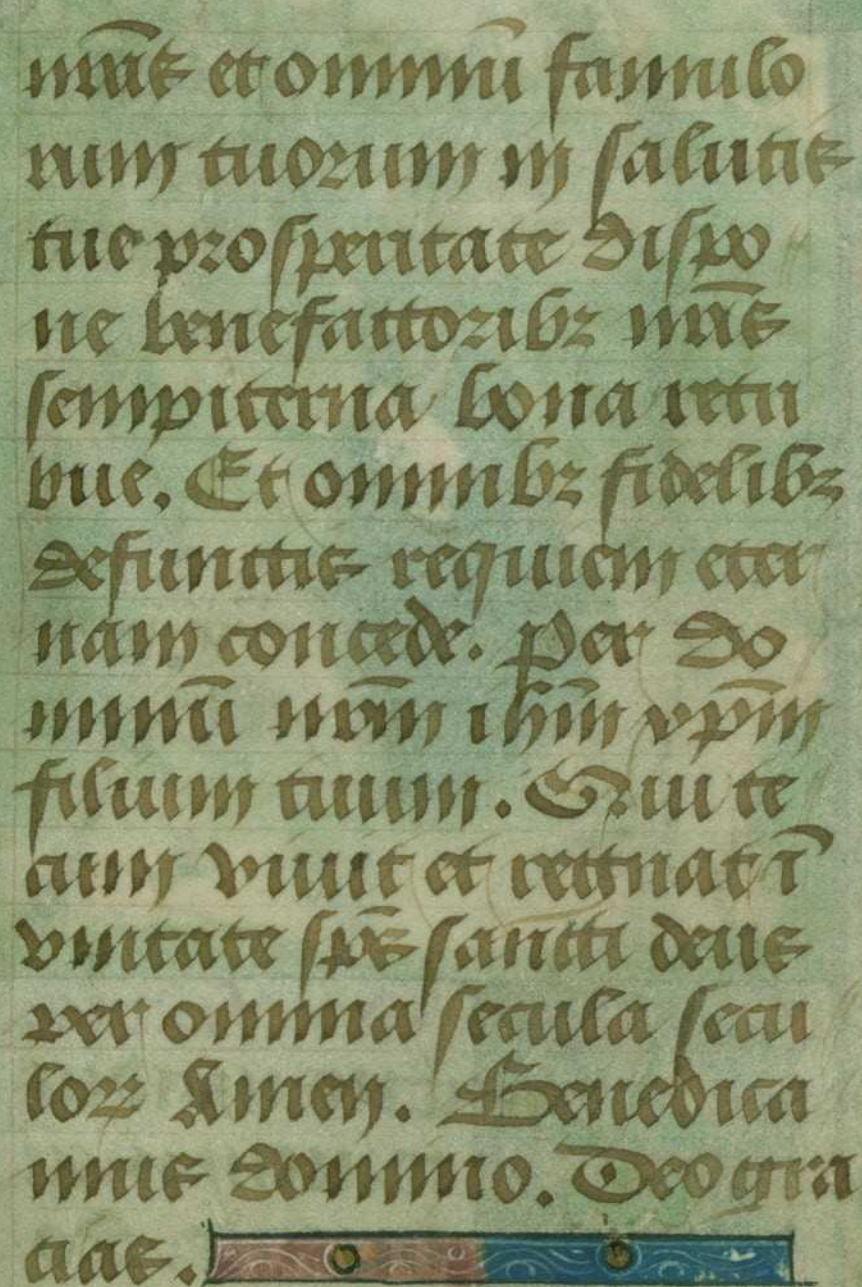 nr̄as et omniū famulo
rum tuorum in salutis
tue prosperitate dispo
ne benefactoribꝫ nr̄is
sempiterna bona retri
bue. Et omnibꝫ fidelibꝫ
defunctis requiem eter
nam concede. Per do
minū nrm̄ ihm̄ xpm̄
filium tuum. Qui te
cum viuit et regnat ī
vnitate sp̄s sancti deus
per omnia secula secu
loꝝ Amen. Benedica
mus domino. Deo gra
cias.